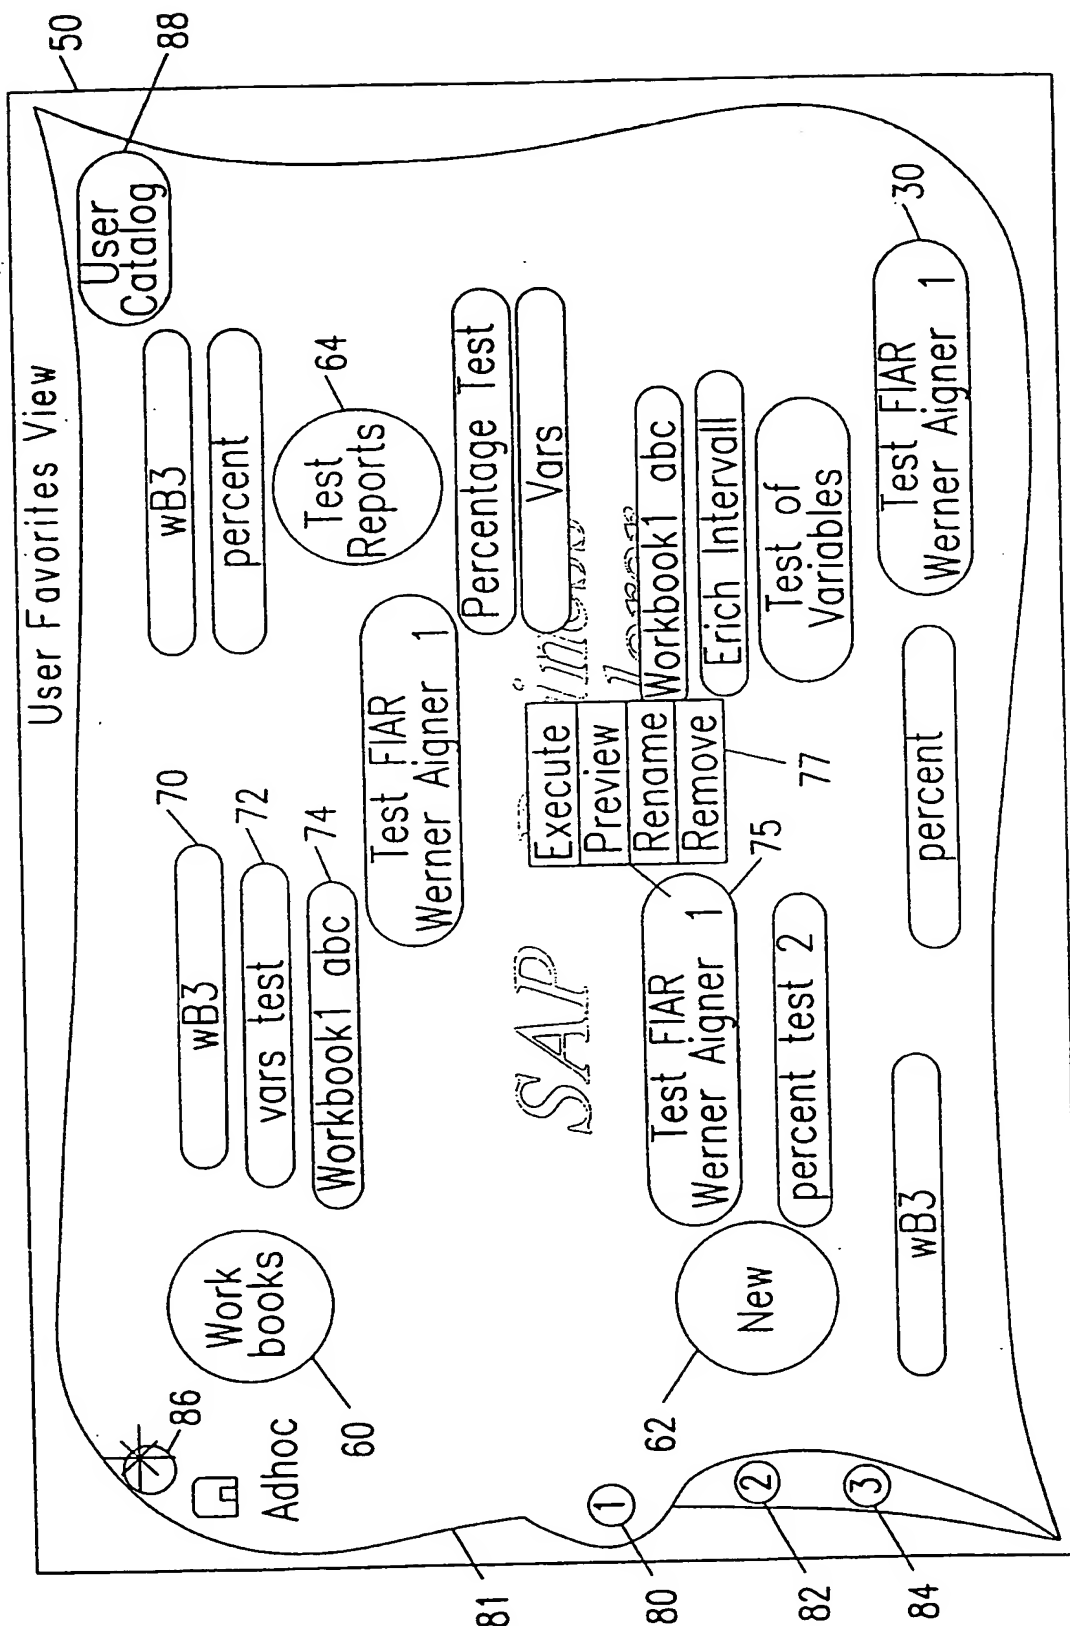 User Favorites View
50
88
User
Catalog
86
Adhoc
Work
books
60
wB3
70
vars test
72
Workbook1 abc
74
wB3
percent
Test
Reports
64
Test FIAR
Werner Aigner 1
Percentage Test
Vars
SAP
Execute
Preview
Rename
Remove
77
Workbook1 abc
Erich Intervall
Test of
Variables
Test FIAR
Werner Aigner 1
75
percent test 2
New
62
wB3
percent
Test FIAR
Werner Aigner 1
30
81
1
80
2
82
3
84